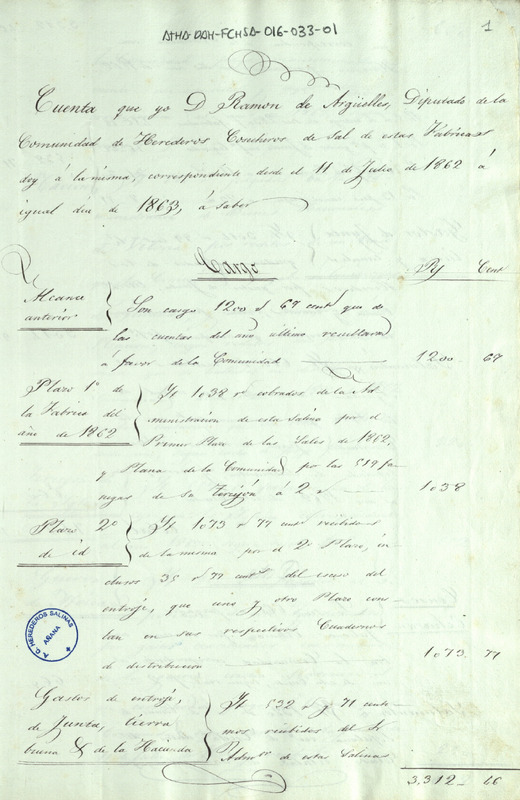 ATHA-DAH-FCHSA-016-033-01
1
Cuenta que yo D Ramon de Argüelles, Diputado de la
Comunidad de Herederos Cosecheros de Sal de estas Fábricas
doy á la misma, correspondiente desde el 11 de Julio de 1862 á
igual dia de 1863, á saber
Cargo
Cent
Alcance
anterior
Son cargo 1200 67 cent que de
las cuentas del año ultimo resultaron
á favor de la Comunidad 1200 67
Plazo 1º de
la Fabrica del
año de 1862
Yt 1038 cobrados de la Ad
ministracion de esta Salina por el
Primer Plazo de las Sales de 1862,
y Plana de la Comunidad por las 519 fa
negas de su Torrejon á 2 1038
Plazo 2º
de id
Yt 1073 77 cent recibidos
de la misma por el 2º Plazo, in
clusos 35 77 cent del esceso del
entroje, que uno y otro Plazo cons
tan en sus respectivos Cuadernos
de distribucion 1073 77
A. C. HEREDEROS SALINAS
AÑANA
Gastos de entroje,
de Junta, tierra
buena & de la Hacienda
Yt 532 y 71 cent
mos recibidos del Sr
Admor de estas Salinas
3,312 46